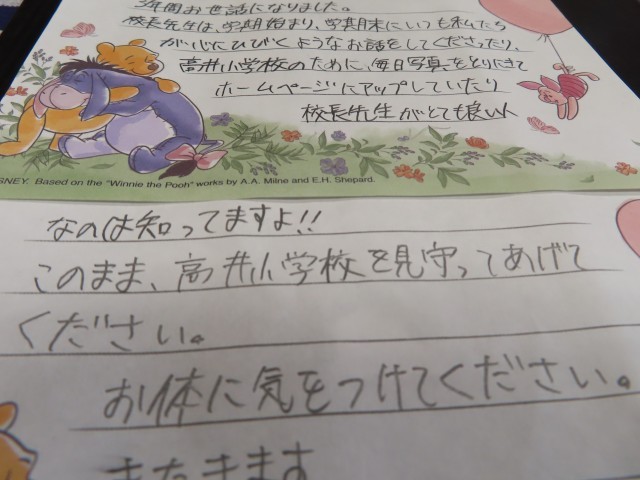 年間お世話になりました。
校長先生は、学期始まり、学期末にいつも私たち
が心にひびくようなお話をしてくださったり、
高井小学校のために、毎日写真をとりにきて
ホームページにアップしていたり
校長先生がとても良い人
SNEY. Based on the "Winnie the Pooh" works by A.A. Milne and E.H. Shepard.
なのは知ってますよ!!
このまま、高井小学校を見守ってあげて
ください。
お体に気をつけてください。
またきます